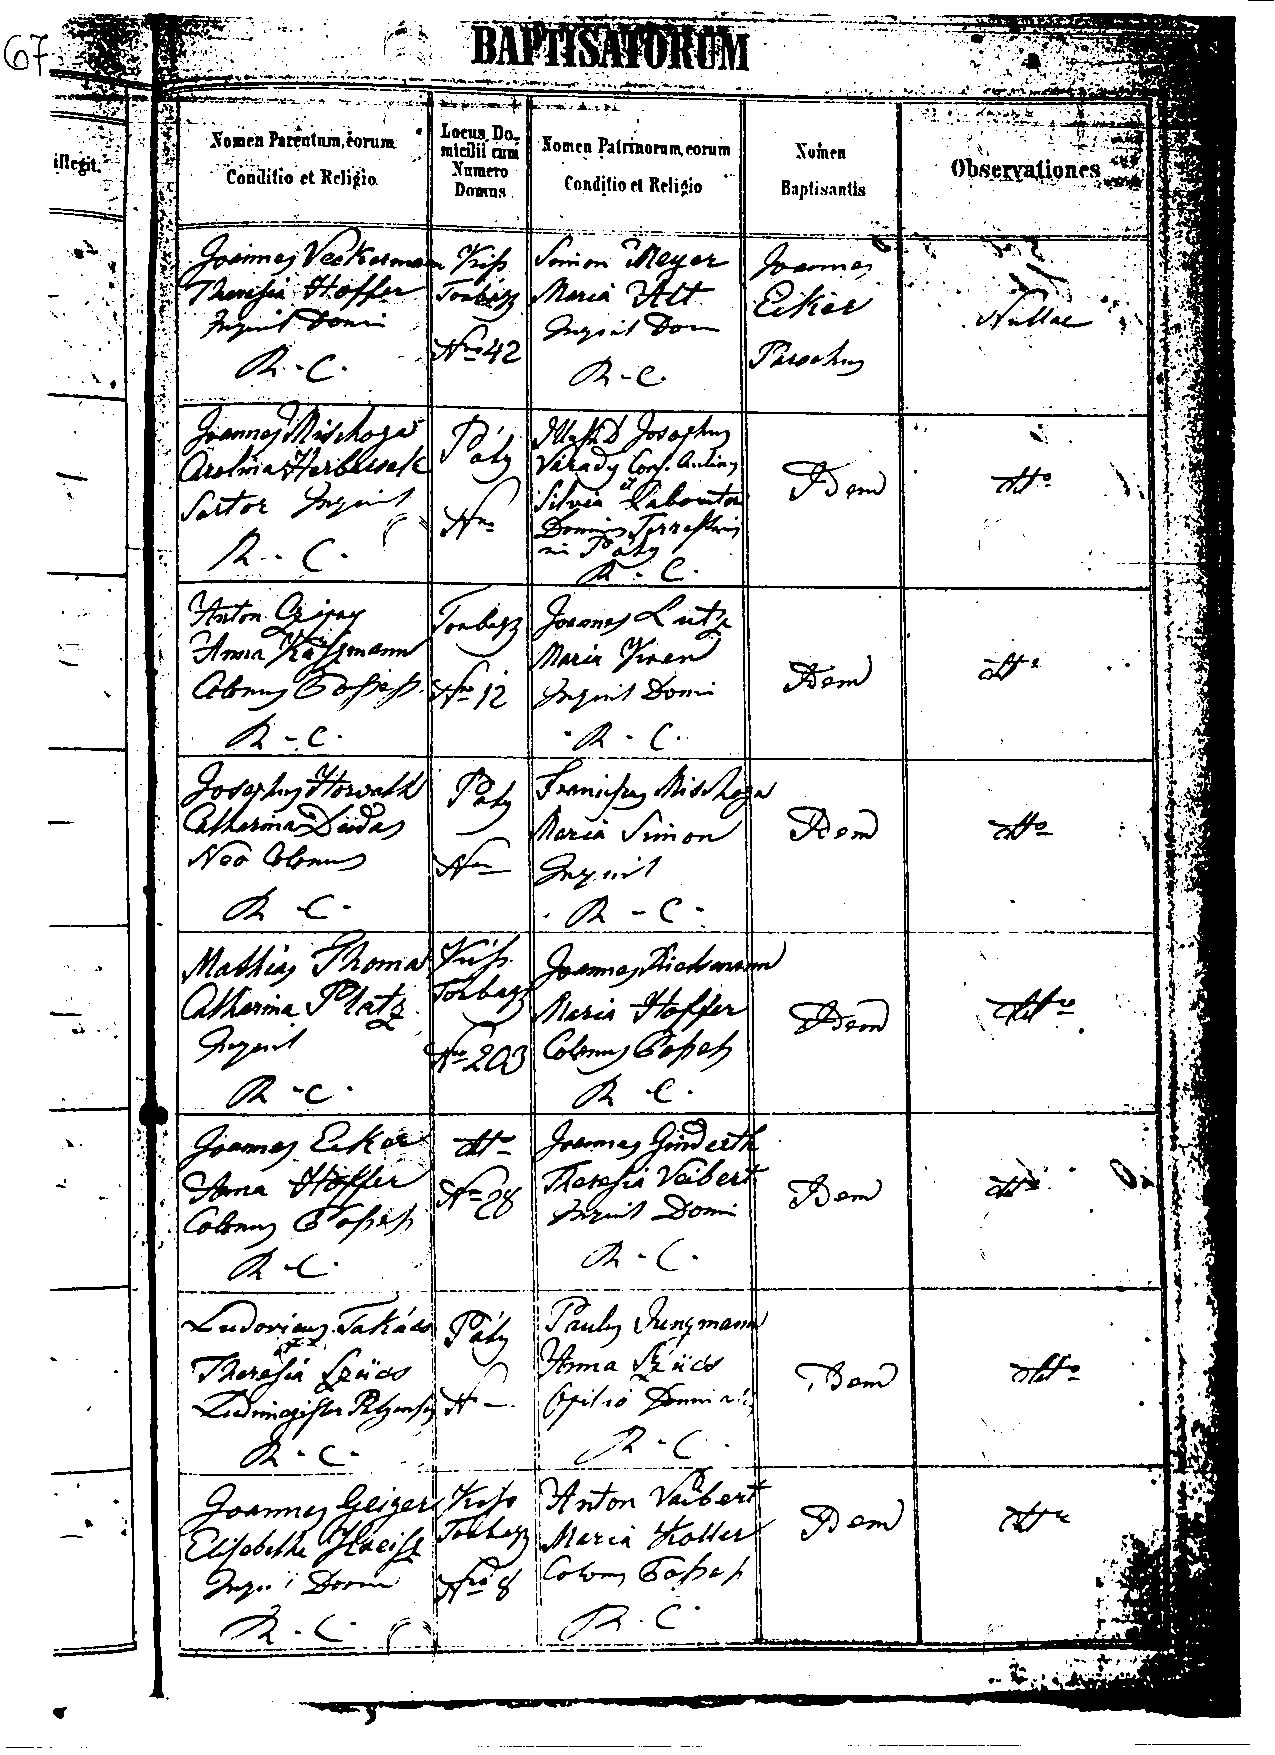 67
BAPTISATORUM
illegit.
Nomen Parentum, eorum
Conditio et Religio
Locus Do-
micilii cum
Numero
Domus
Nomen Patrinorum, eorum
Conditio et Religio
Nomen
Baptisantis
Observationes
Joannes Veekermann
Theresia Hoffer
Inquil Domi
R. C.
Kiss
Torbágy
Nro 42
Simon Meyer
Maria Alt
Inquil Dom
R. C.
Joannes
Eiker
Parochus
Nullae
Joannes Mischoga
Carolina
Sartor Inquil
R. C.
Páty
Nro
Josephus
Várady
Silvia
Dominus Terrestris
in Páty
R. C.
Idem
dtto
Anton
Anna
Colonus
R. C.
Torbagy
Nro 12
Joannes Lutz
Maria
Inquil Domi
R. C.
Idem
dtto
Josephus Horvath
Catharina Dudás
Neo Colonus
R. C.
Páty
Nro
Franciscus Mischoga
Maria Simon
Inquil
R. C.
Idem
dtto
Mathias Thoma
Catharina Platz
Inquil
R. C.
Kiss
Torbagy
Nro 203
Joannes
Maria Hoffer
Colonus
R. C.
Idem
dtto
Joannes Eiker
Anna Hoffer
Colonus
R. C.
dtto
No 28
Joannes Ginderth
Theresia Veibert
Inquil Domi
R. C.
Idem
dtto
Ludovicus Takács
Theresia Szücs
Ludimagister
R. C.
Páty
N
Paulus Jungmann
Anna Szücs
Opilio
R. C.
Idem
dtto
Joannes Geiger
Elisabetha
Domi
R. C.
Kiss
Torbagy
Nro 8
Anton Veibert
Maria Koller
Colonus
R. C.
Idem
dtto